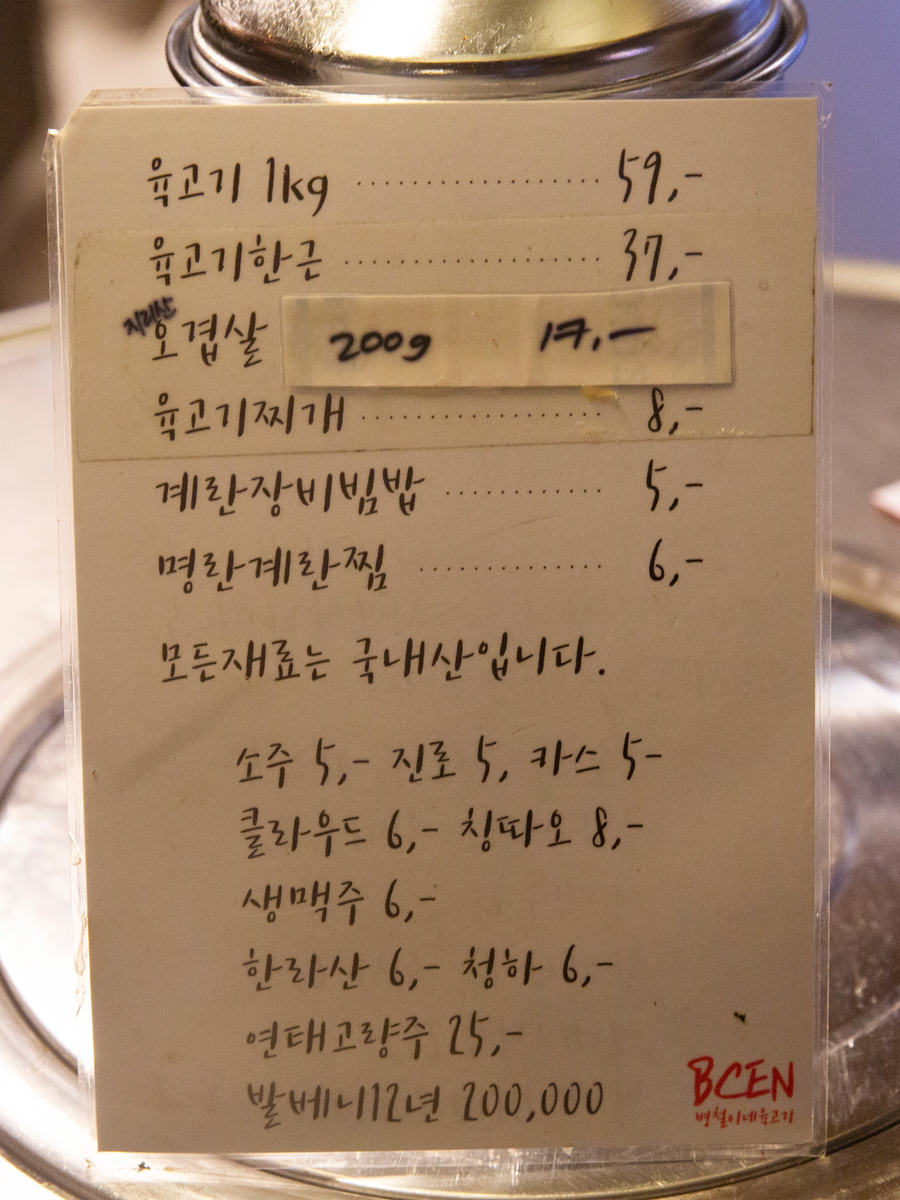 육고기 1kg ………………… 59,-
육고기한근 ………………… 37,-
지리산
오겹살 200g 17,-
육고기찌개 ………………… 8,-
계란장비빔밥 ………… 5,-
명란계란찜 ………… 6,-
모든재료는 국내산입니다.
소주 5,- 진로 5, 카스 5-
클라우드 6,- 칭따오 8,-
생맥주 6,-
한라산 6,- 청하 6,-
연태고량주 25,-
발베니12년 200,000
BCEN
병철이네육고기